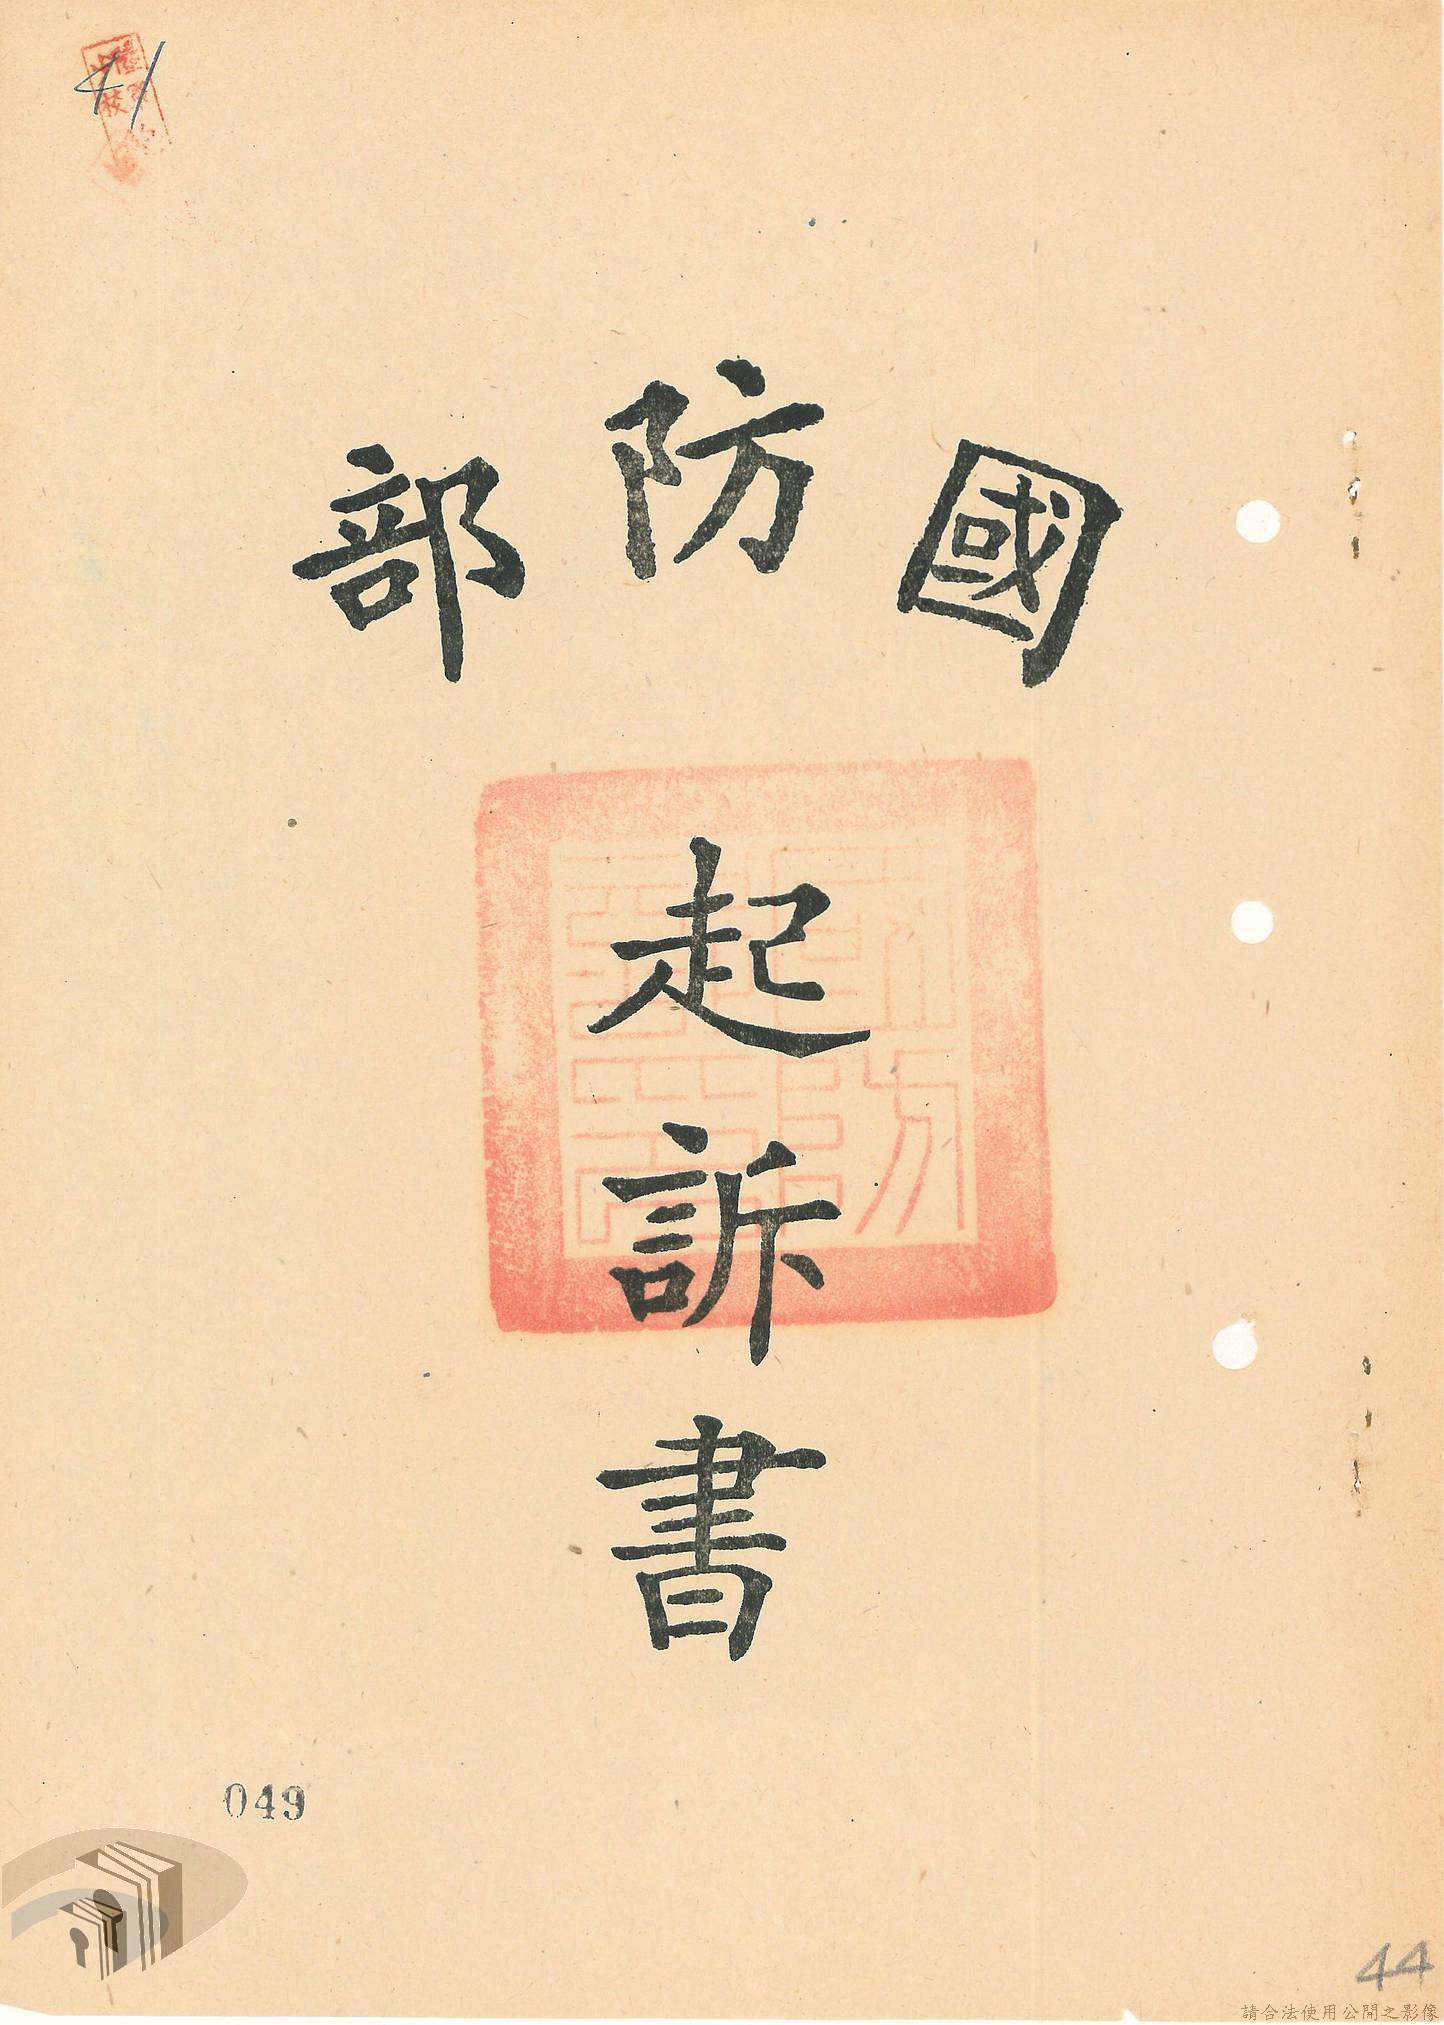 41
國防部
起訴書
049
44
請合法使用公開之影像